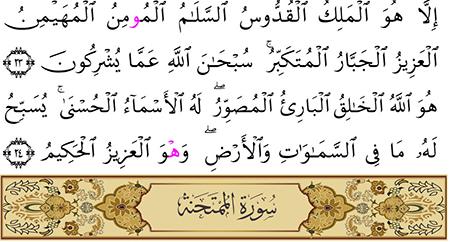 إِلَّا هُوَ الْمَلِكُ الْقُدُّوسُ السَّلَٰمُ الْمُومِنُ الْمُهَيْمِنُ
الْعَزِيزُ الْجَبَّارُ الْمُتَكَبِّرُ ۚ سُبْحَٰنَ اللَّهِ عَمَّا يُشْرِكُونَ ٢٣
هُوَ اللَّهُ الْخَٰلِقُ الْبَارِئُ الْمُصَوِّرُ ۖ لَهُ الْأَسْمَآءُ الْحُسْنَىٰ ۚ يُسَبِّحُ
لَهُۥ مَا فِي السَّمَٰوَٰتِ وَالْأَرْضِ ۖ وَهْوَ الْعَزِيزُ الْحَكِيمُ ٢٤
سُورَةُ الْمُمْتَحَنَةِ